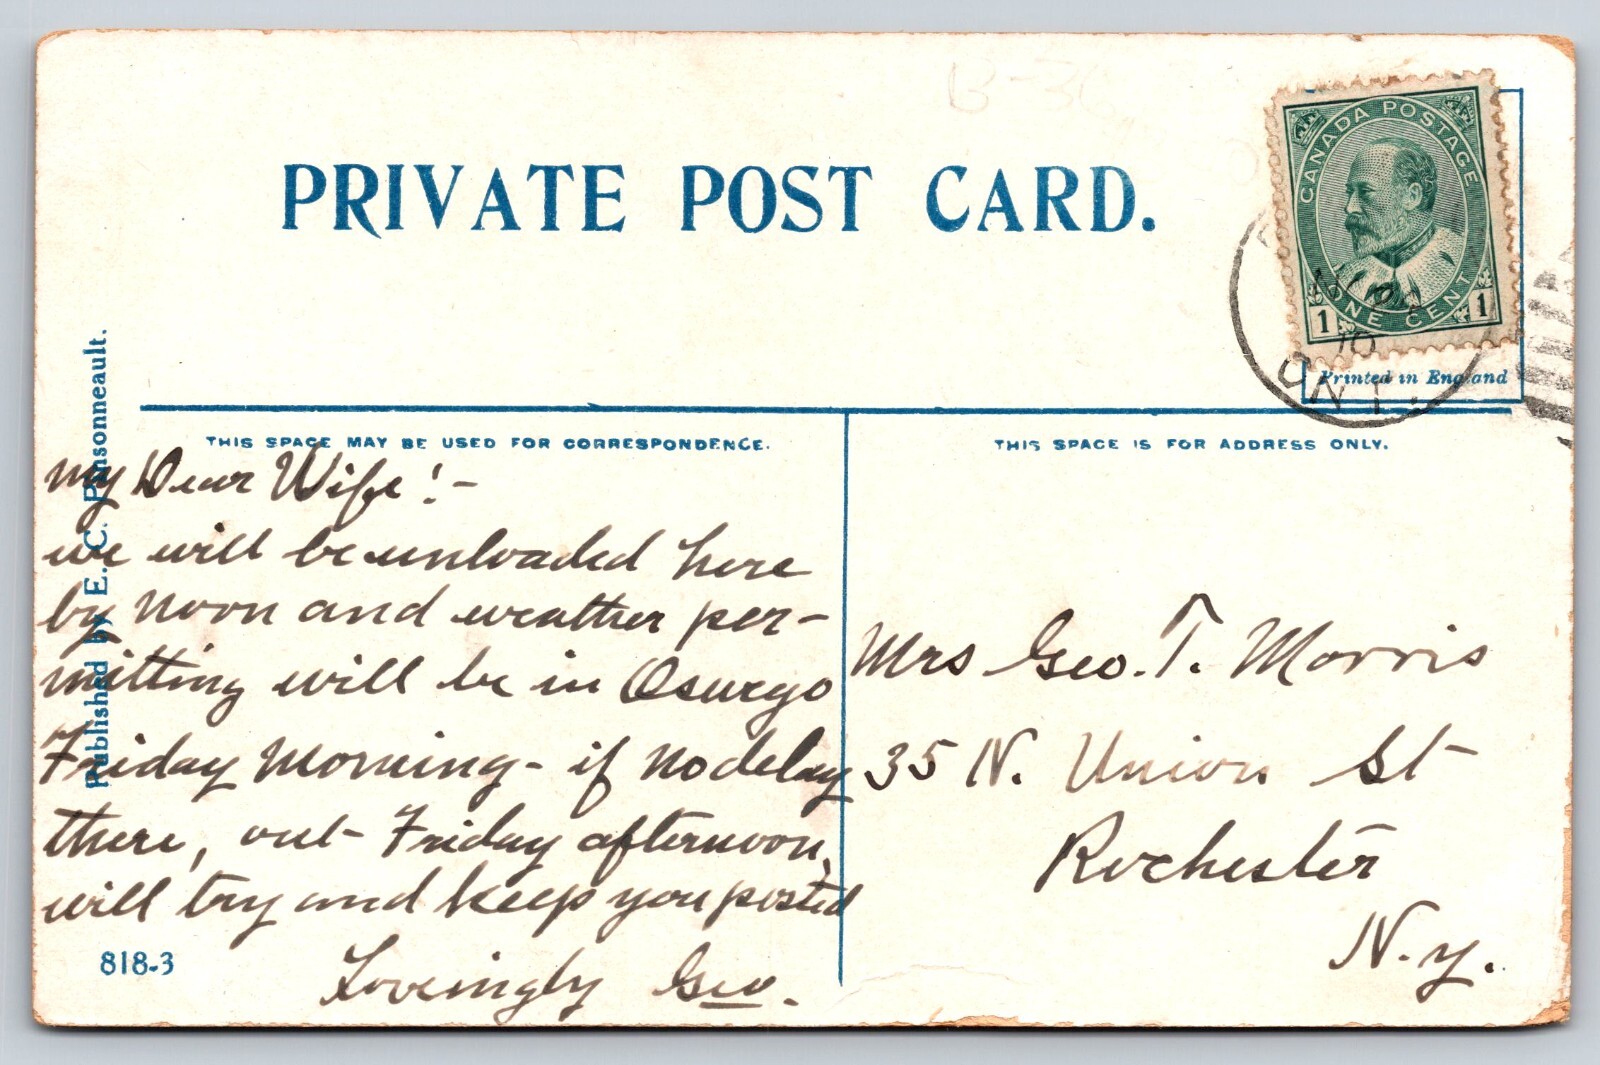 B-36
PRIVATE POST CARD.
CANADA POSTAGE
ONE CENT
1 1
10
ONT.
Printed in England
THIS SPACE MAY BE USED FOR CORRESPONDENCE.
THIS SPACE IS FOR ADDRESS ONLY.
Published by E. C. Parsonneault.
My Dear Wife! -
we will be unloaded here
by noon and weather per-
mitting will be in Oswego
Friday Morning - if no delay
there, out Friday afternoon,
will try and keep you posted
Lovingly Geo.
818-3
Mrs Geo. T. Morris
35 N. Union St
Rochester
N.Y.